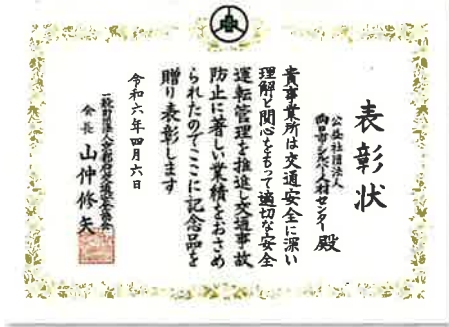 表彰状
公益社団法人
向日市シルバー人材センター殿
貴事業所は交通安全に深い
理解と関心をもって適切な安全
運転管理を推進し交通事故
防止に著しい業績をおさめ
られたのでここに記念品を
贈り表彰します
令和六年四月六日
一般財団法人京都府交通安全協会
会長 山仲修矢